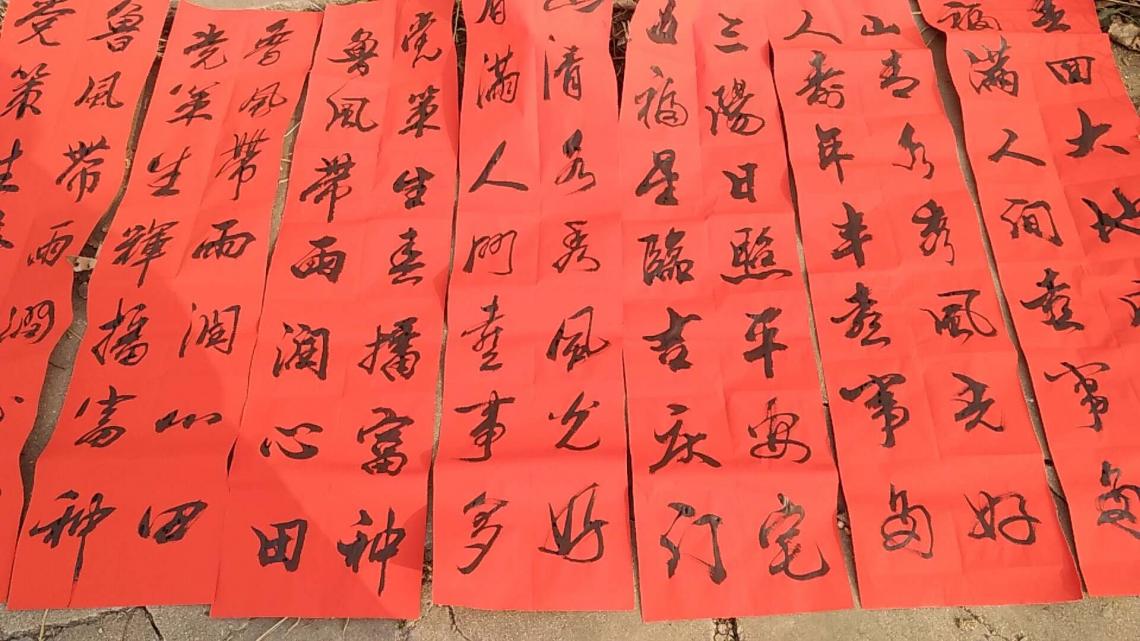 回大地
福满人间喜事多
山青水秀风光好
人寿年丰喜事多
三陽日照平安宅
福星臨吉庆门
清水秀风光好
满人门喜事多
党策生春播富种
鲁风带雨润心田
鲁风带雨润心田
党策生辉播富种
鲁风带雨润
党策生